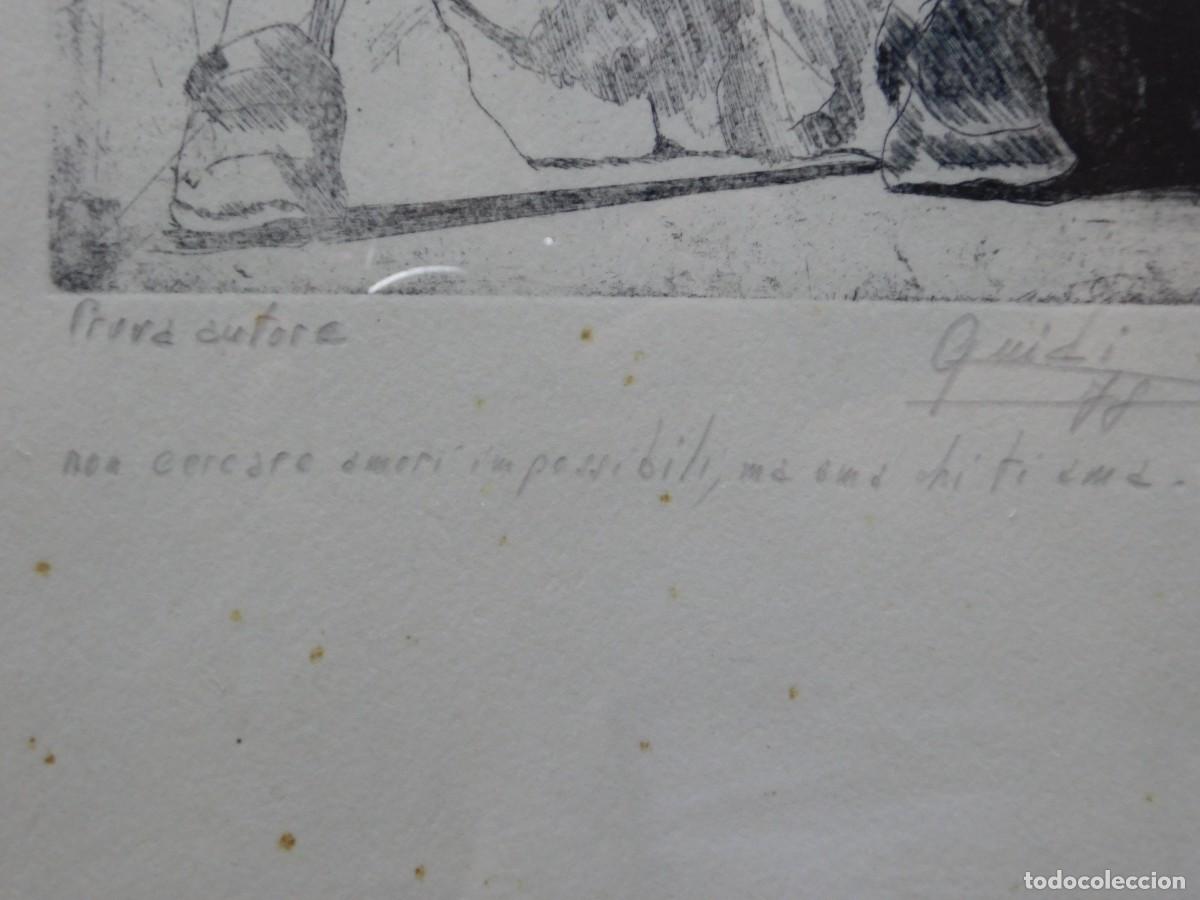 Prova autore
Guidi
78
non cercare amori impossibili, ma ama chi ti ama.
todocoleccion